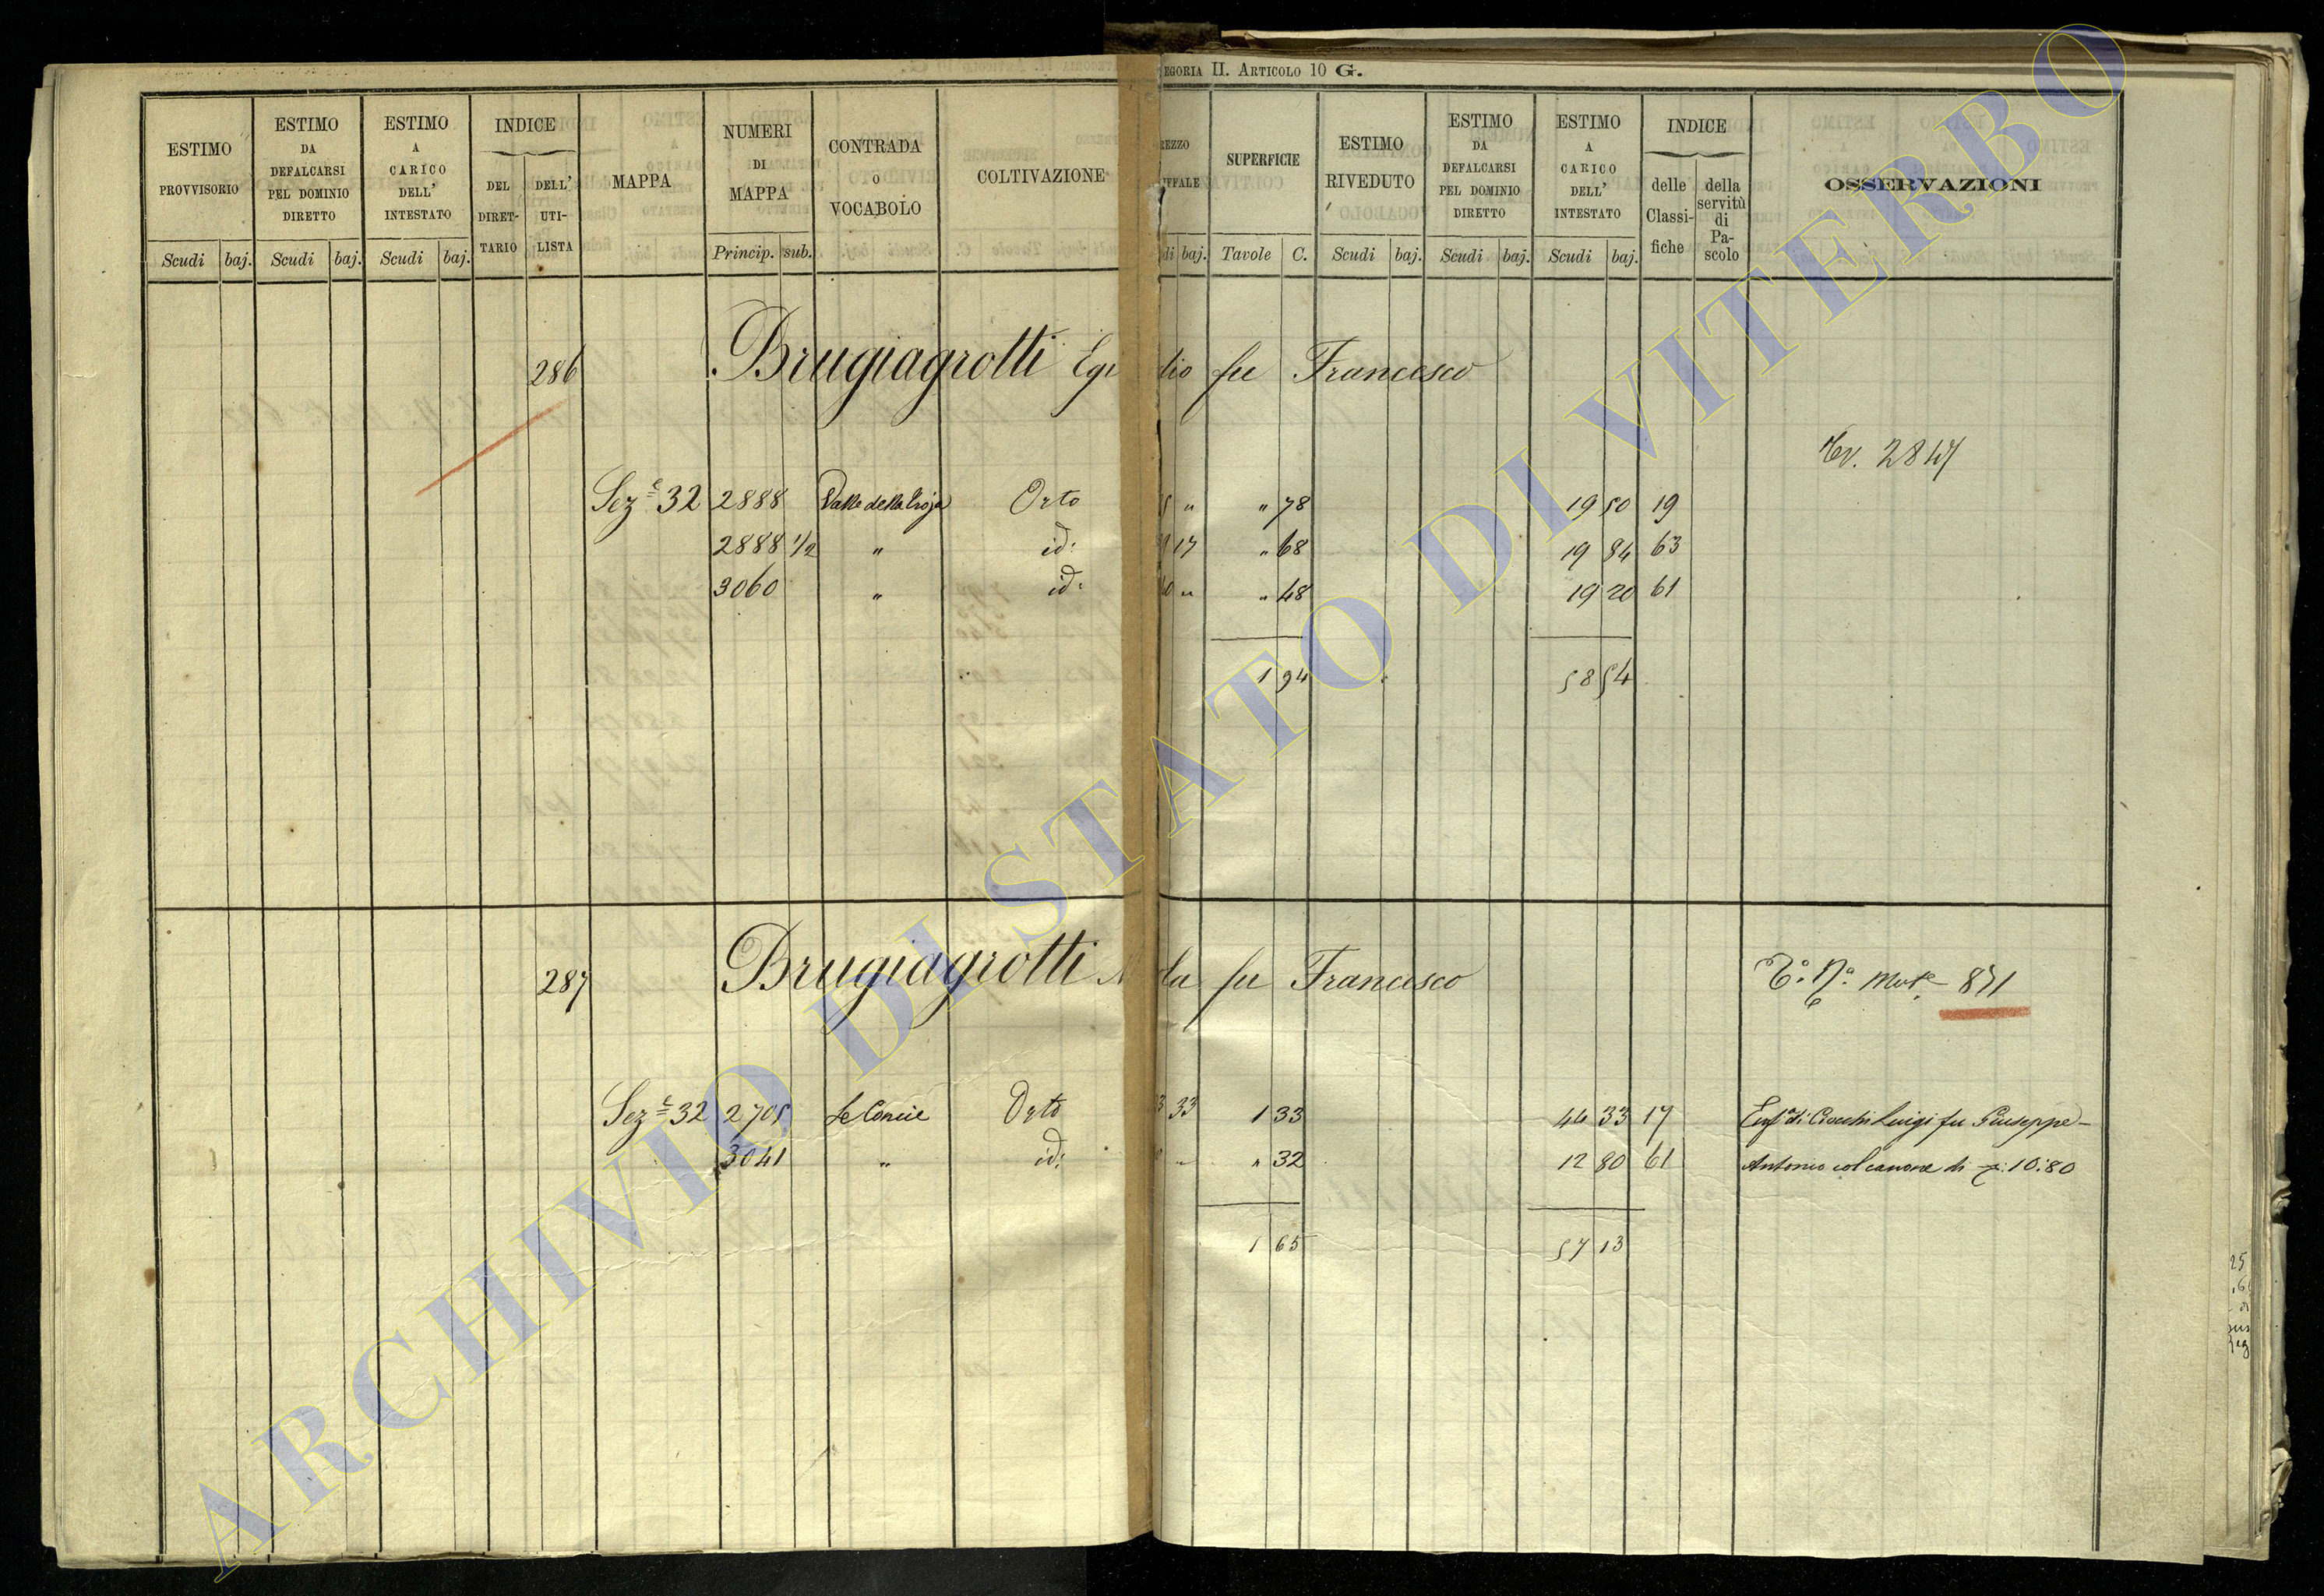 EGORIA II. ARTICOLO 10 G.
ESTIMO PROVVISORIO
Scudi baj.
ESTIMO DA DEFALCARSI PEL DOMINIO DIRETTO
Scudi baj.
ESTIMO A CARICO DELL' INTESTATO
Scudi baj.
INDICE
DEL DIRETTARIO
DELL' UTILISTA
MAPPA
NUMERI DI MAPPA
Princip. sub.
CONTRADA O VOCABOLO
COLTIVAZIONE
REZZO
IFFALE
di baj.
SUPERFICIE
Tavole C.
ESTIMO RIVEDUTO
Scudi baj.
ESTIMO DA DEFALCARSI PEL DOMINIO DIRETTO
Scudi baj.
ESTIMO A CARICO DELL' INTESTATO
Scudi baj.
INDICE
delle Classifiche
della servitù di Pascolo
OSSERVAZIONI
286 Brugiagrotti Egi dio fu Francesco
Sez.e 32 2888 Valle della Troja Orto " " 78 19 50 19
2888 1/2 " id: 17 " 68 19 84 63
3060 " id: " " 48 19 20 61
1 94 58 54
287 Brugiagrotti la fu Francesco
871
Sez.e 32 2705 Le Concie Orto 3 33 1 33 44 33 17 Enf.a di Ciocchi Luigi fu Giuseppe -
3041 " id: " " 32 12 80 61 Antonio col canone di 10:80
1 65 57 13
ARCHIVIO DI STATO DI VITERBO